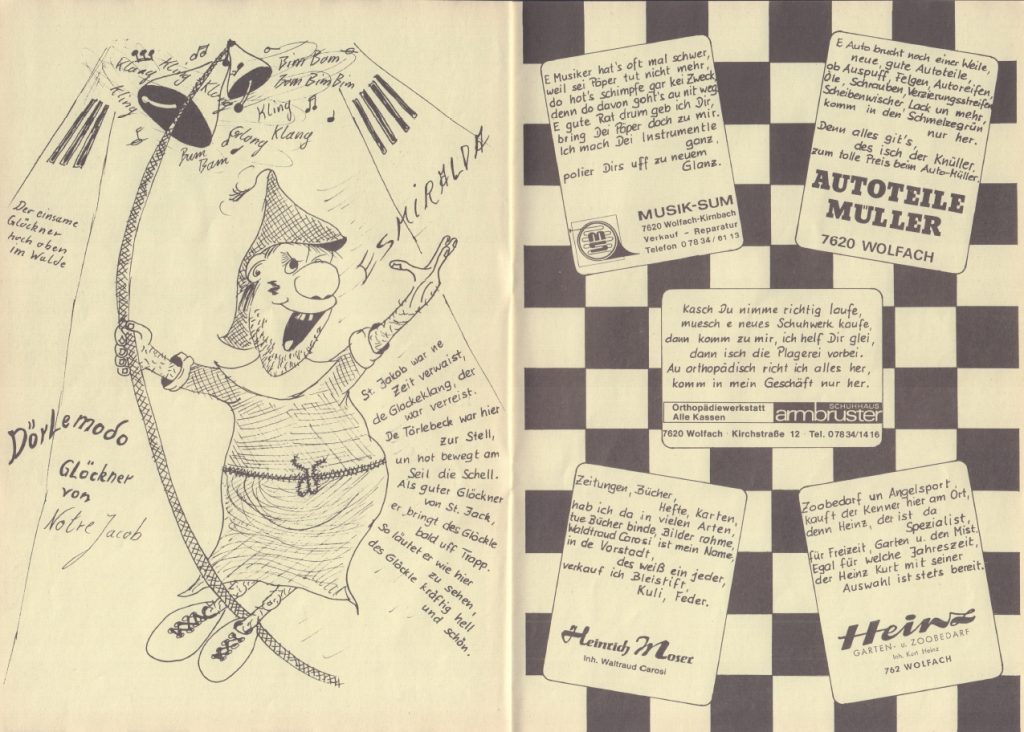 Klang
Kling
Kling
Kling
Bim Bom
Bom Bim Bim
Kling
Glong Klang
Bum
Bam
ESMIRALDA
Der einsame
Glöckner
hoch oben
im Walde
DörLemodo
Glöckner
von
Notre Jacob
St. Jakob war ne
Zeit verwaist,
de Glockeklang, der
war verreist.
De Törlebeck war hier
zur Stell,
un hot bewegt am
Seil die Schell.
Als guter Glöckner
von St. Jack,
er bringt des Glöckle
bald uff Trapp.
So läutet er wie hier
zu sehen,
des Glöckle kräftig hell
und schön.
E Musiker hat's oft mal schwer,
weil sei Pöper tut nicht mehr,
do hot's schimpfe gar kei Zweck,
denn do davon goht's au nit weg.
E gute Rat drum geb ich Dir,
bring Dei Pöper doch zu mir.
Ich mach Dei Instrumentle
ganz,
polier Dirs uff zu neuem
Glanz.
MUSIK-SUM
7620 Wolfach-Kirnbach
Verkauf - Reparatur
Telefon 07834/6113
E Auto brucht noch einer Weile,
neue, gute Autoteile,
ob Auspuff, Felgen, Autoreifen,
Öle, Schrauben, Verzierungsstreifen
Scheibenwischer, Lack un mehr,
komm in den Schmelzegrün
nur her.
Denn alles git's,
des isch der Knüller.
zum tolle Preis beim Auto-Müller.
AUTOTEILE
MÜLLER
7620 WOLFACH
Kasch Du nimme richtig laufe,
muesch e neues Schuhwerk kaufe,
dann komm zu mir, ich helf Dir glei,
dann isch die Plagerei vorbei.
Au orthopädisch richt ich alles her,
komm in mein Geschäft nur her.
Orthopädiewerkstatt
Alle Kassen
SCHUHHAUS
armbruster
7620 Wolfach · Kirchstraße 12 · Tel. 07834/1416
Zeitungen, Bücher,
Hefte, Karten,
hab ich da in vielen Arten,
tue Bücher binde Bilder rahme,
Waldtraud Carosi ist mein Name,
in de Vorstadt,
des weiß ein jeder,
verkauf ich Bleistift,
Kuli, Feder.
Heinrich Moser
Inh. Waltraud Carosi
Zoobedarf un Angelsport
kauft der Kenner hier am Ort,
denn Heinz, der ist da
Spezialist,
für Freizeit, Garten u. den Mist.
Egal für welche Jahreszeit,
der Heinz Kurt mit seiner
Auswahl ist stets bereit.
Heinz
GARTEN- u. ZOOBEDARF
Inh. Kurt Heinz
762 WOLFACH